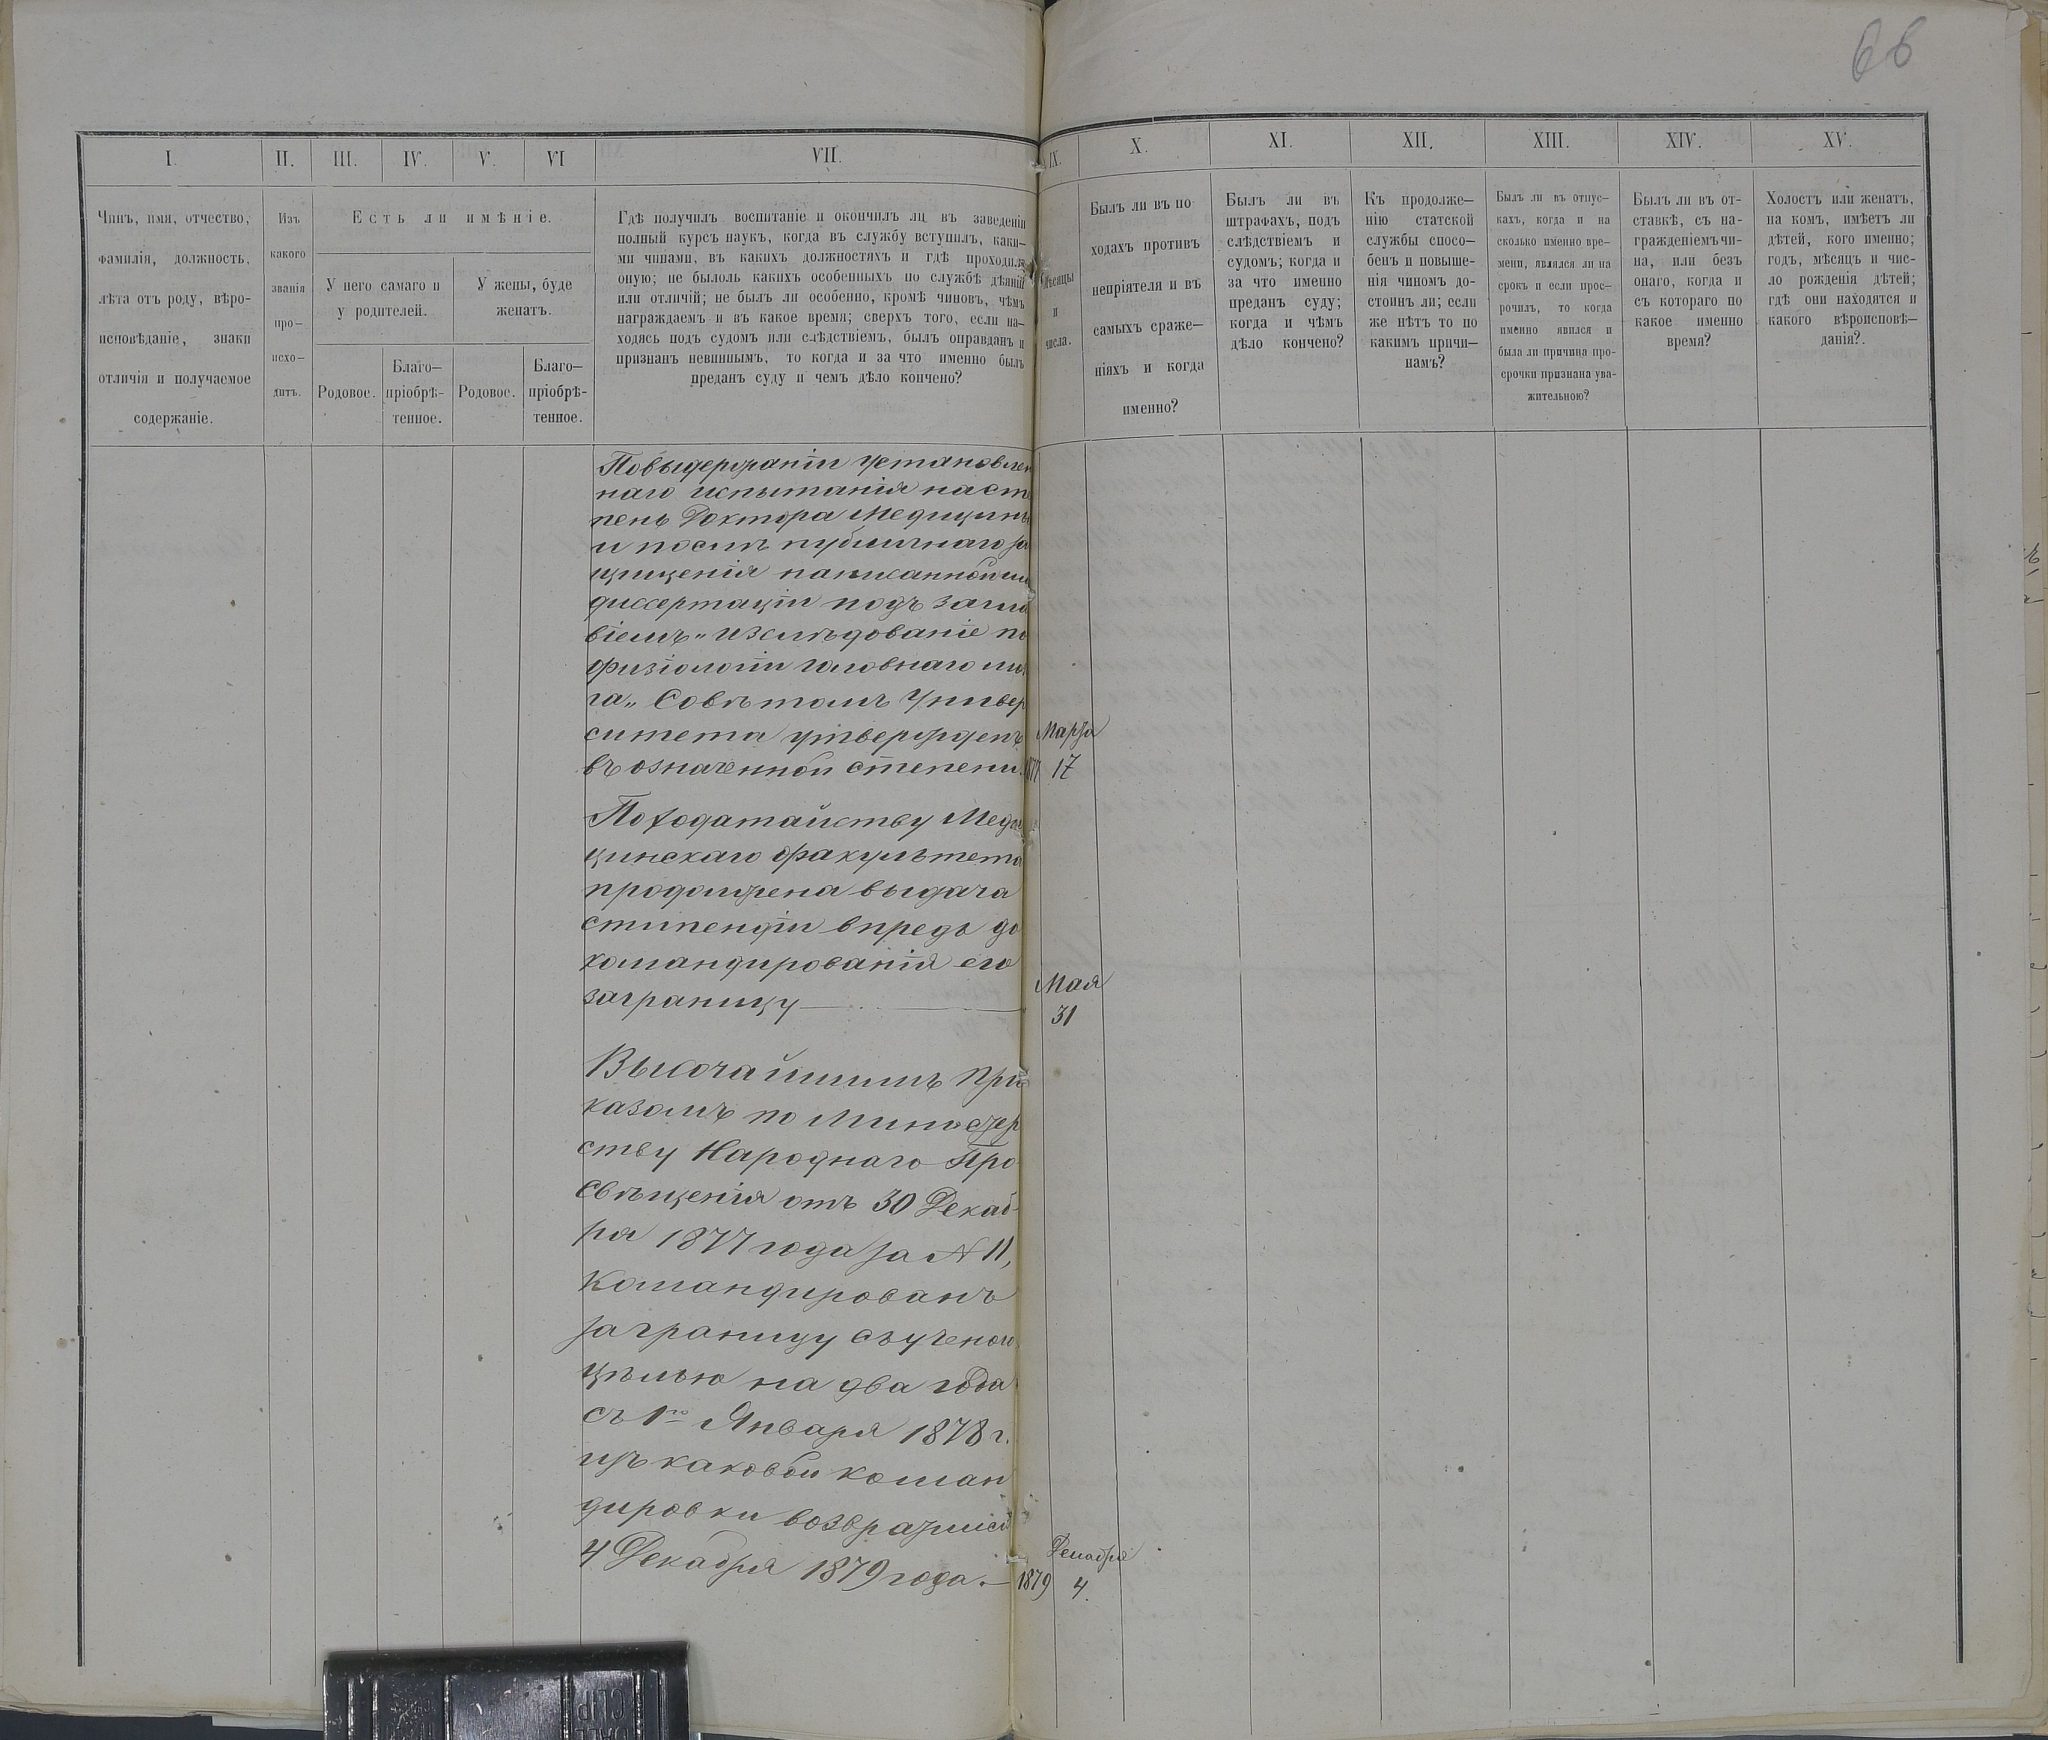 66
I.
II.
III.
IV.
V.
VI
VII.
IX.
X.
XI.
XII.
XIII.
XIV.
XV.
Чинъ, имя, отчество,
фамилія, должность,
лѣта отъ роду, вѣро-
исповѣданіе, знаки
отличія и получаемое
содержаніе.
Изъ
какого
званія
про-
исхо-
дитъ.
Есть ли имѣніе.
У него самаго и
у родителей.
У жены, буде
женатъ.
Родовое.
Благо-
пріобрѣ-
тенное.
Родовое.
Благо-
пріобрѣ-
тенное.
Гдѣ получилъ воспитаніе и окончилъ ли въ заведеніи
полный курсъ наукъ, когда въ службу вступилъ, каки-
ми чинами, въ какихъ должностяхъ и гдѣ проходилъ
оную; не былоль какихъ особенныхъ по службѣ дѣяній
или отличій; не былъ ли особенно, кромѣ чиновъ, чѣмъ
награждаемъ и въ какое время; сверхъ того, если на-
ходясь подъ судомъ или слѣдствіемъ, былъ оправданъ и
признанъ невиннымъ, то когда и за что именно былъ
преданъ суду и чемъ дѣло кончено?
Мѣсяцы
и
числа.
Былъ ли въ по
ходахъ противъ
непріятеля и въ
самыхъ сраже-
ніяхъ и когда
именно?
Былъ ли въ
штрафахъ, подъ
слѣдствіемъ и
судомъ; когда и
за что именно
преданъ суду;
когда и чѣмъ
дѣло кончено?
Къ продолже-
нію статской
службы спосо-
бенъ и повыше-
нія чиномъ до-
стоинъ ли; если
же нѣтъ то по
какимъ причи-
намъ?
Былъ ли въ отпус-
кахъ, когда и на
сколько именно вре-
мени, являлся ли на
срокъ и если прос-
рочилъ, то когда
именно явился и
была ли причина про-
срочки признана ува-
жительною?
Былъ ли въ от-
ставкѣ, съ на-
гражденіемъ чи-
на, или безъ
онаго, когда и
съ котораго по
какое именно
время?
Холостъ или женатъ,
на комъ, имѣетъ ли
дѣтей, кого именно;
годъ, мѣсяцъ и чис-
ло рожденія дѣтей;
гдѣ они находятся и
какого вѣроисповѣ-
данія?.
По выдержаніи установлен
наго испытанія на сте
пень Доктора Медицины
и послѣ публичнаго за
щищенія написанной им
диссертаціи подъ загла
віемъ „изслѣдованіе по
физіологіи головнаго моз
га„ Совѣтомъ Универ
ситета утвержденъ
въ означенной степени.
Марта
1877 17
По ходатайству Меди
цинскаго факультета
продолжена выдача
стипендіи впредь до
командированія его
заграницу
Мая
31
Высочайшимъ При
казомъ по Министер
ству Народнаго Про
свѣщенія отъ 30 Декаб-
ря 1877 года за N 11,
Командированъ
заграницу съ ученою
цѣлью на два года
съ 1го Января 1878 г.
изъ каковой коман
дировки возвратился
4 Декабря 1879 года.—
Декабря
1879 4.